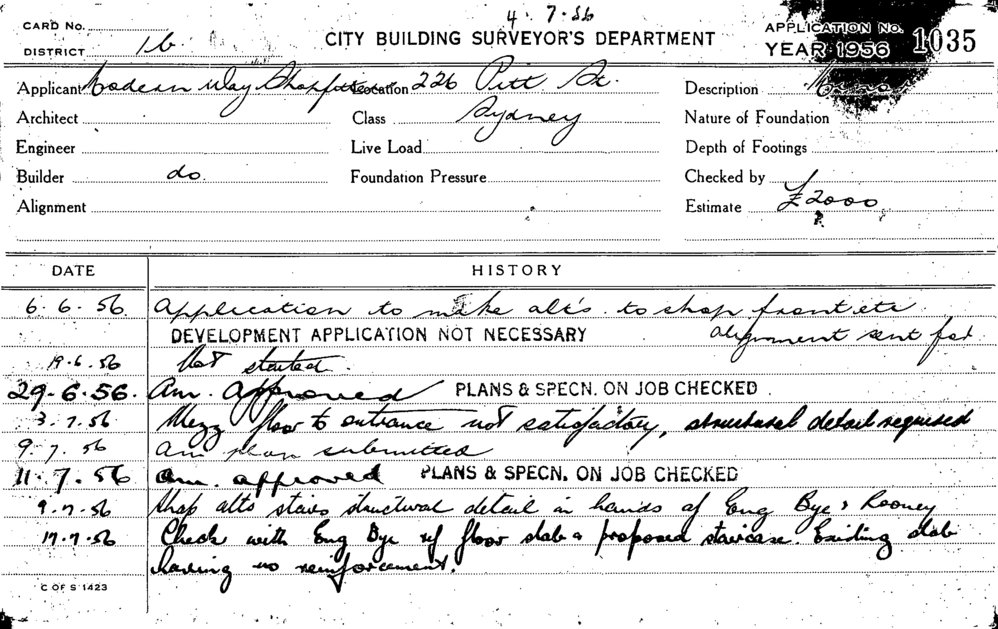 4. 7. 56
CARD No.
CITY BUILDING SURVEYOR'S DEPARTMENT
APPLICATION No.
DISTRICT 16.
YEAR 1956 1035
Applicant Modern Way Shopfitters Location 226 Pitt St. Description
Architect Class Sydney Nature of Foundation
Engineer Live Load Depth of Footings
Builder do. Foundation Pressure Checked by
Alignment Estimate £2000
DATE HISTORY
6. 6. 56. Application to make alt's. to shop front etc
DEVELOPMENT APPLICATION NOT NECESSARY alignment sent for
19. 6. 56 Not started.
29. 6. 56. Am. Approved PLANS & SPECN. ON JOB CHECKED
3. 7. 56 Mezz floor to entrance not satisfactory, structural detail required
9. 7. 56 Am plan submitted
11. 7. 56 am. approved PLANS & SPECN. ON JOB CHECKED
9. 7. 56 Shop alts stairs structural detail in hands of Eng Bye & Rooney
17. 7. 56 Check with Eng Bye ref floor slab & proposed staircase. Existing slab
having no reinforcement.
C OF S 1423